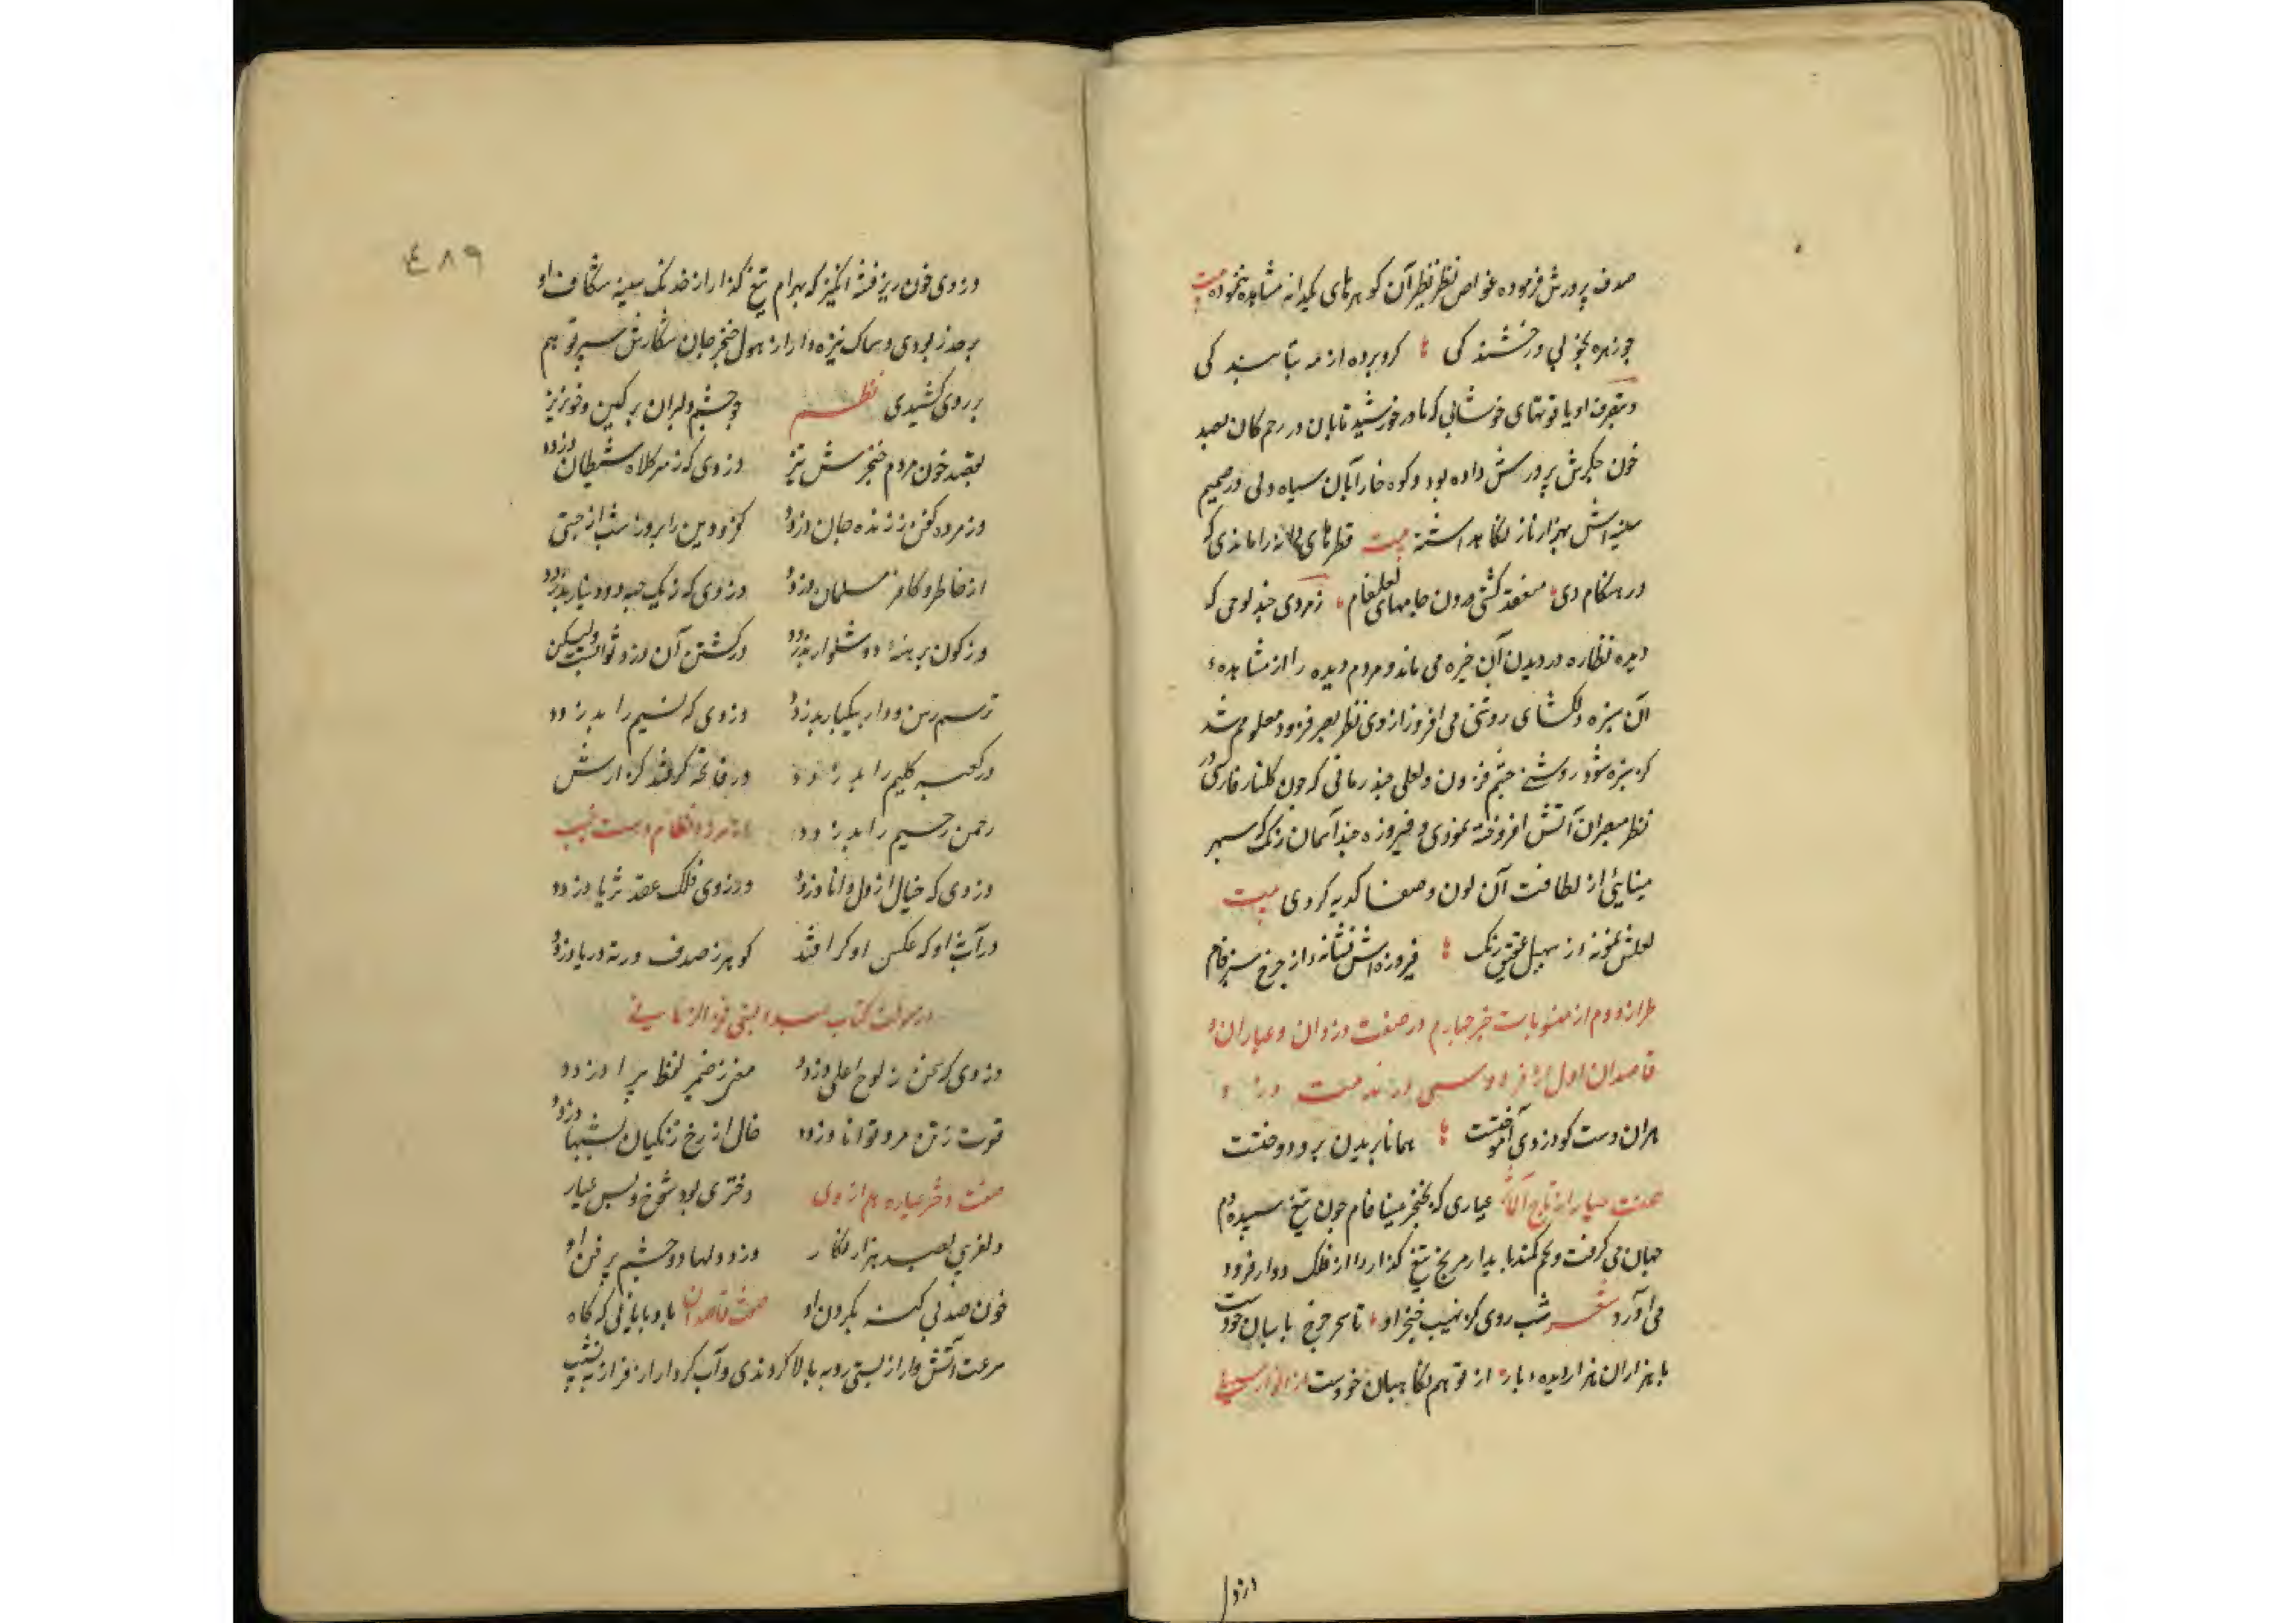 صدف پرورش فرموده غواص نظر نظیر آن کوهرهای یکدانه مشاهده ننموده بیت
جو زهره بخوبی درخشندکی کرو برده از مه بتابندکی
و متعرف او یاقوتهای خوشابی که مادر خورشید تابان در رحم کان بصد
خون جکرش پرورش داده بود و کوه خارا بان سیاه دلی در صمیم
سینه اش بهزار ناز نکاهداشته بیت قطرهای ژاله را ماندی که
در هنکام دی منعقد کشتی درون جامهای لعلفام زمردی جند لوحی که
دیده نظاره در دیدن آن خیره می ماند و مردم دیده را از مشاهدهٔ
آن سبزه دلکشای روشنی می افزود از وی نظر بصر فزود معلوم شد
که سبزه شود روشنی جشم فزون و لعلی جند رمانی که جون کلنار فارسی در
نظر مبصران آتش افروخته نمودی و فیروزه جند آسمان رنک که سپهر
مینایی از لطافت آن لون و صفا کدیه کردی بیت
لعلش نمونه از سهیل عقیق رنک فیروزه اش نشانه از جرخ سبز فام
طراز دوم از منسوبات خبر جهارم در صفت دزدان و عیاران و
قاصدان اول از فردوسی در مذمت دزد
هران دست کو دزدی آموختست همانا بریدن برو دوختست
صفت عیار از تاج المآثر عیاری که بخنجر مینا فام جون تیغ سپیده دم
جهان می کرفت و بخم کمند تابدار مریخ تیغ کذار را از فلک دوار فرود
می آورد شعر شب روی کز نهیب خنجر او تا سحر جرخ باسبان خودست
با هزاران هزار دیده باز از توهم نکاهبان خودست از انوار سهیلی
دزد
٤٨٩
دزدی خون ریز فتنه انکیز که بهرام تیغ کذار از خدنک سینه شکاف او
بر حذر بودی و سماک نیزه دار از هول خنجر جان شکارش سپر توهم
بر روی کشیدی نظم جو جشم دلبران پر کین و خونریز
بقصد خون مردم خنجرش تیز دزدی که ز سر کلاه شیطان دزدد
وز مرده کفن ز زنده جان دزدد کز و دین را بروز شب از جستی
از خاطر و کافر مسلمان دزدد دزدی که ز یک حبه دو دینار بدزدد
وز کون برهنه دو شلوار بدزدد در کشتن آن دزد توانست ولیکن
ترسم رسن و دار بیکبار بدزدد دزدی که نسیم را بدزدد
در کعبه کلیم را بدزدد در فاتحه کر فتد کذارش
رحمن رحیم را بدزدد
دزدی که خیال از دل دانا دزدد وز دزدی فلک عقد ثریا دزدد
در آب او که عکس او کر افتد کوهر ز صدف در ته دریا دزدد
دزدی که سخن ز لوح اعلی دزدد مغز ز ضمیر لفظ پیرا دزدد
قوت ز تن مرد توانا دزدد خال از رخ زنکیان بشبها دزدد
صفت دختر عیاره هم از وی دختری بود شوخ و بس عیار
دلفریبی بصد هزار نکار دزد دلها دو جشم پر فن او
خون صد بی کنه بکردن او صفت قاصدان باد پایانی که کاه
سرعت آتش وار از پستی رو به بالا کردندی و آب کردار از فراز به نشیب